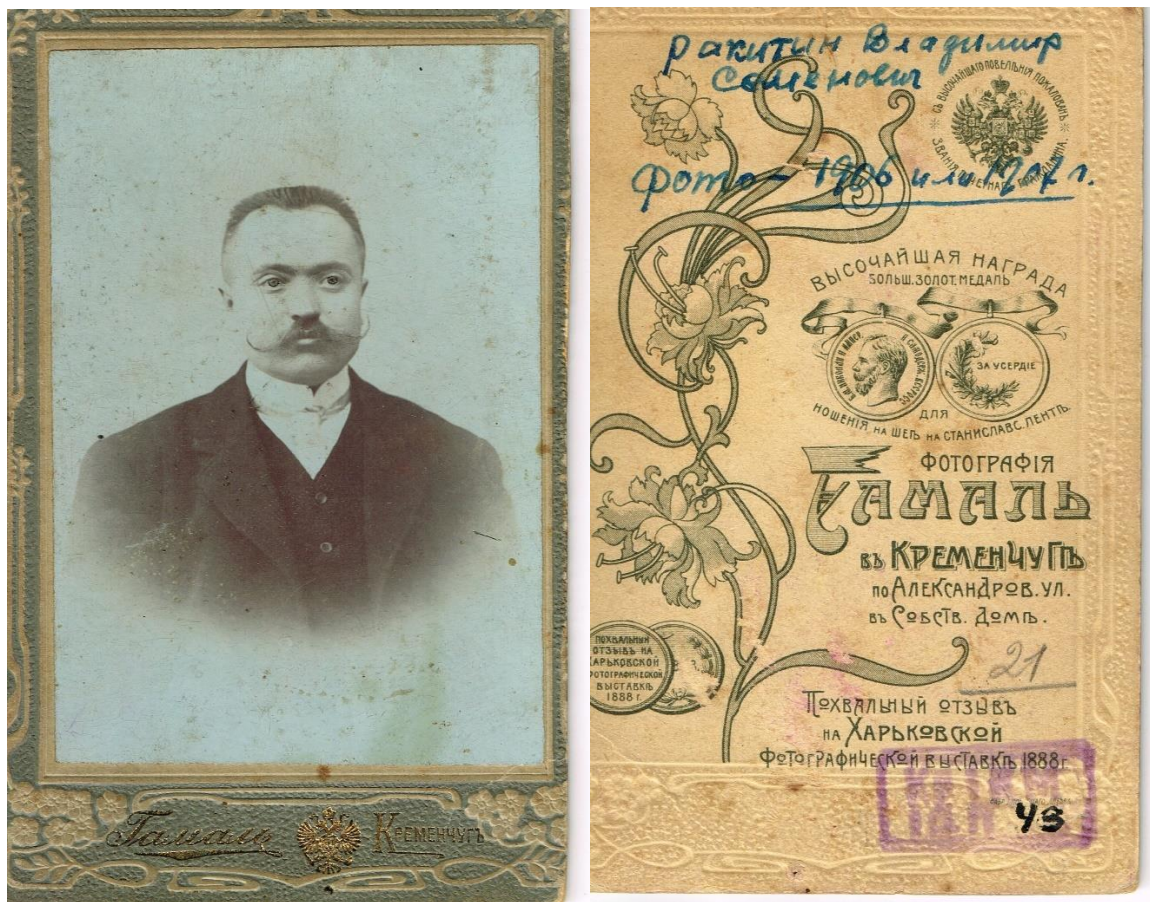 Гамаль
Кременчугъ
Ракитин Владимир
Семенович
Фото – 1906 или 1907 г.
СЪ ВЫСОЧАЙШАГО ПОВЕЛѢНІЯ ПОЖАЛОВАНЪ
ЗВАНІЯ ПОЧЕТНАГО ГРАЖДАНИНА.
ВЫСОЧАЙШАЯ НАГРАДА
БОЛЬШ. ЗОЛОТ. МЕДАЛЬ
ЗА УСЕРДІЕ
ДЛЯ
НОШЕНІЯ НА ШЕѢ НА СТАНИСЛАВС. ЛЕНТѢ.
ФОТОГРАФІЯ
ГАМАЛЬ
въ КРЕМЕНЧУГѢ
по АЛЕКСАНДРОВ. УЛ.
въ СОБСТВ. ДОМѢ.
ПОХВАЛЬНЫЙ
ОТЗЫВЪ НА
ХАРЬКОВСКОЙ
ФОТОГРАФИЧЕСКОЙ
ВЫСТАВКѢ
1888 г.
21
ПОХВАЛЬНЫЙ ОТЗЫВЪ
НА ХАРЬКОВСКОЙ
ФОТОГРАФИЧЕСКОЙ ВЫСТАВКѢ 1888 г.
43